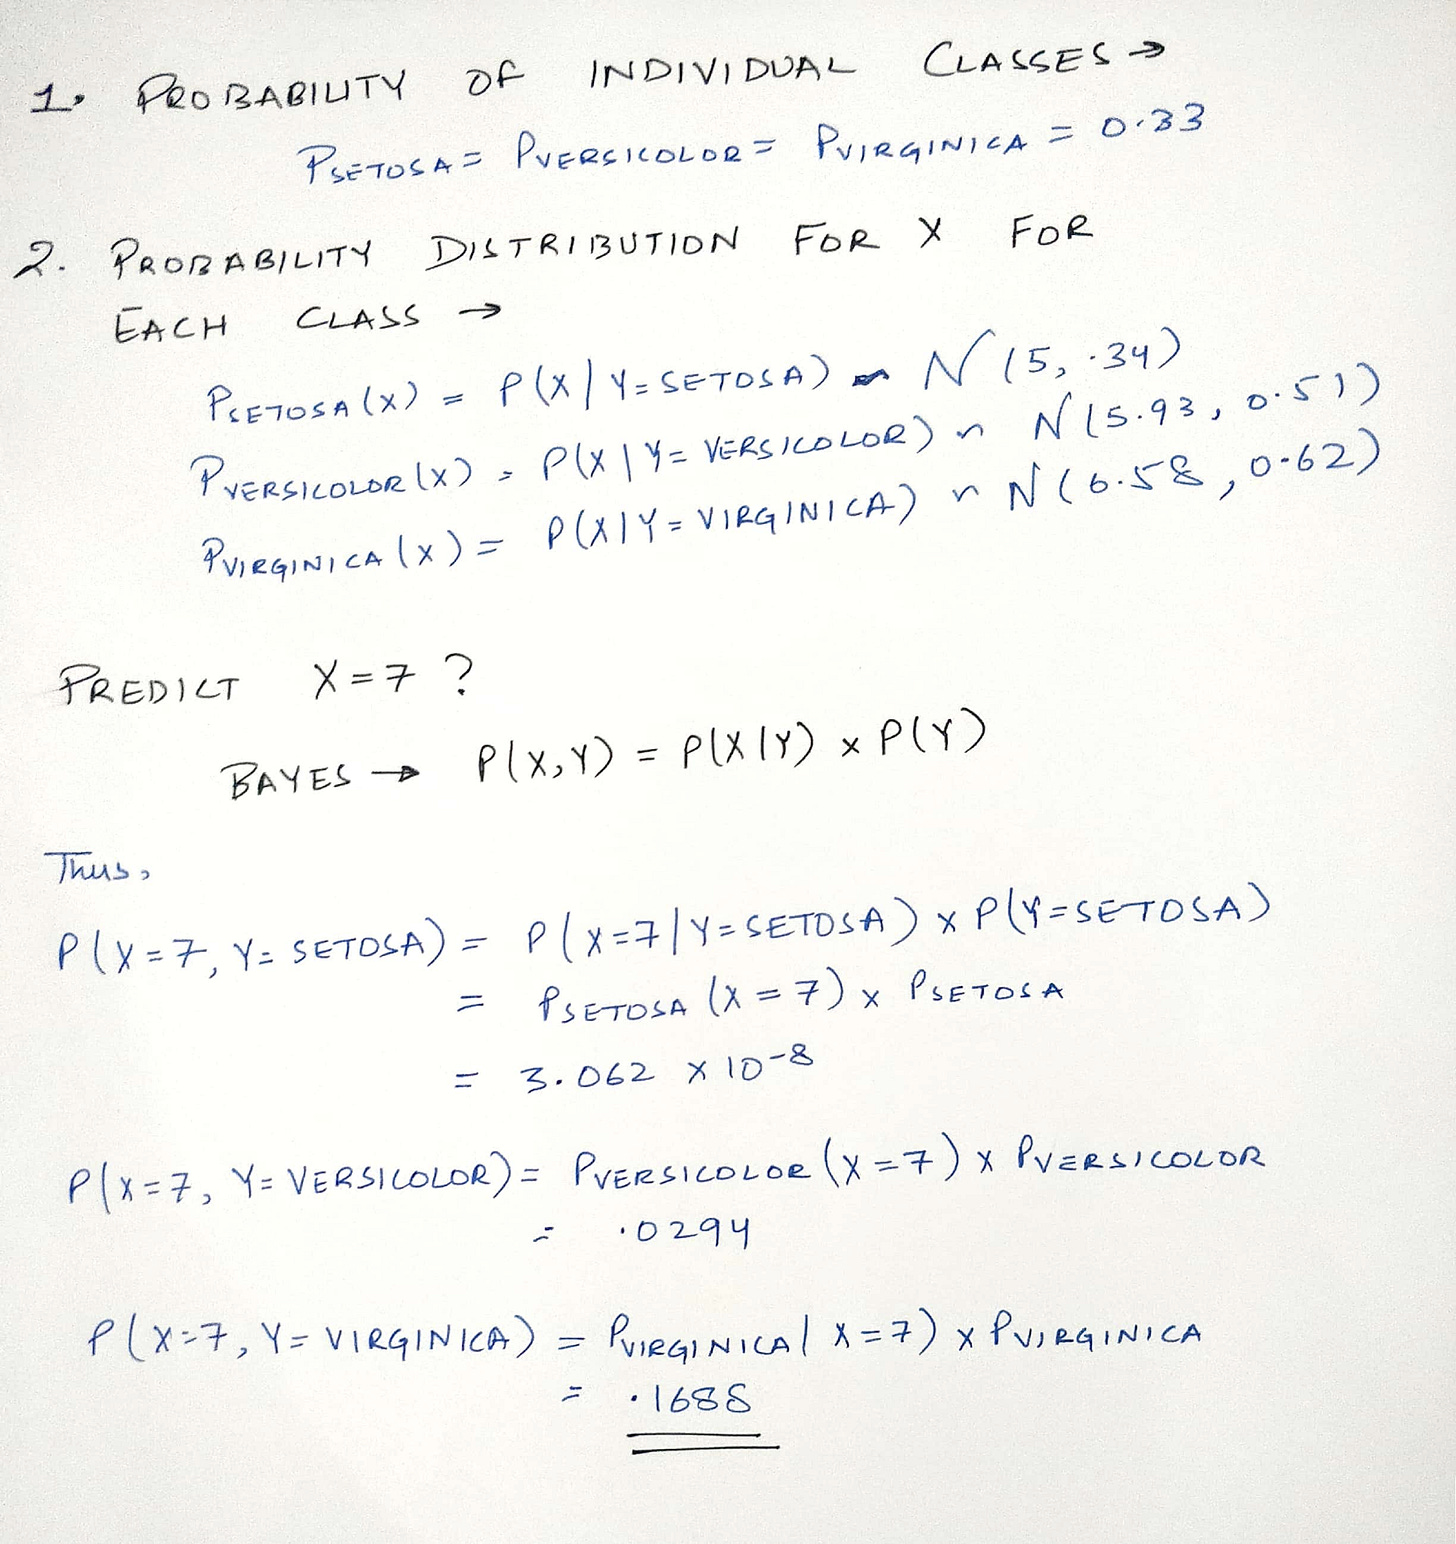 1. PROBABILITY OF INDIVIDUAL CLASSES →
PSETOSA = PVERSICOLOR = PVIRGINICA = 0.33
2. PROBABILITY DISTRIBUTION FOR X FOR
EACH CLASS →
PSETOSA(X) = P(X|Y=SETOSA) ~ N(5, .34)
PVERSICOLOR(X) = P(X|Y=VERSICOLOR) ~ N(5.93, 0.51)
PVIRGINICA(X) = P(X|Y=VIRGINICA) ~ N(6.58, 0.62)
PREDICT X=7 ?
BAYES → P(X,Y) = P(X|Y) × P(Y)
Thus,
P(X=7, Y=SETOSA) = P(X=7|Y=SETOSA) × P(Y=SETOSA)
= PSETOSA (X=7) × PSETOSA
= 3.062 × 10-8
P(X=7, Y=VERSICOLOR) = PVERSICOLOR (X=7) × PVERSICOLOR
= .0294
P(X=7, Y=VIRGINICA) = PVIRGINICA(X=7) × PVIRGINICA
= .1688